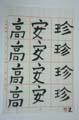 珍珍珍珍
安安安安
高高高高